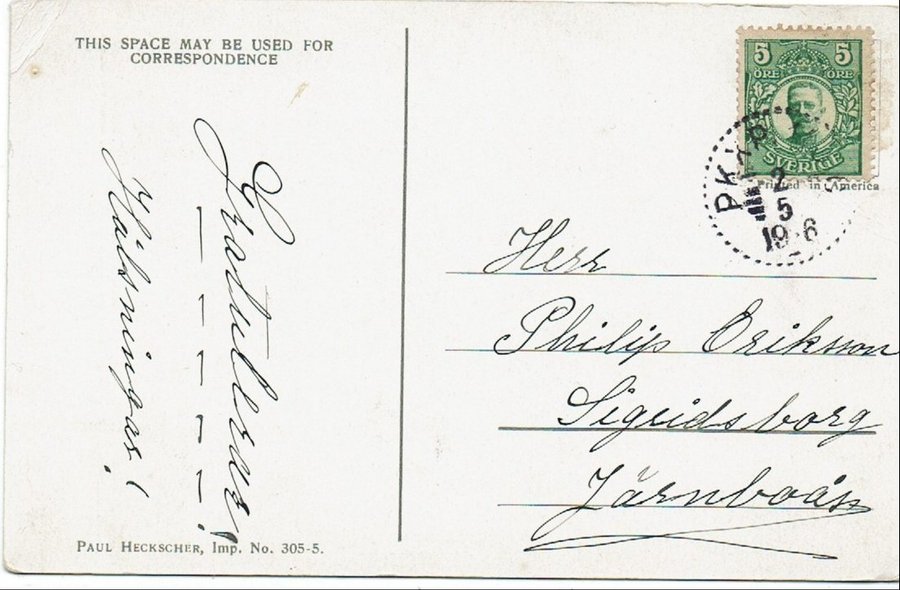 THIS SPACE MAY BE USED FOR
CORRESPONDENCE
Gratuleras!
Hälsningar!
PAUL HECKSCHER, Imp. No. 305-5.
5 5
ÖRE ÖRE
SVERIGE
Printed in America
PKXP
2
5
Herr
Philip Eriksson
Sigridsborg
Järnboås